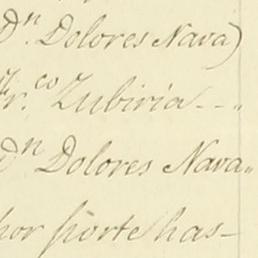 Dn. Dolores Nava)
Fr.co Zubiria - - "
Dn Dolores Nava "
por porte has-